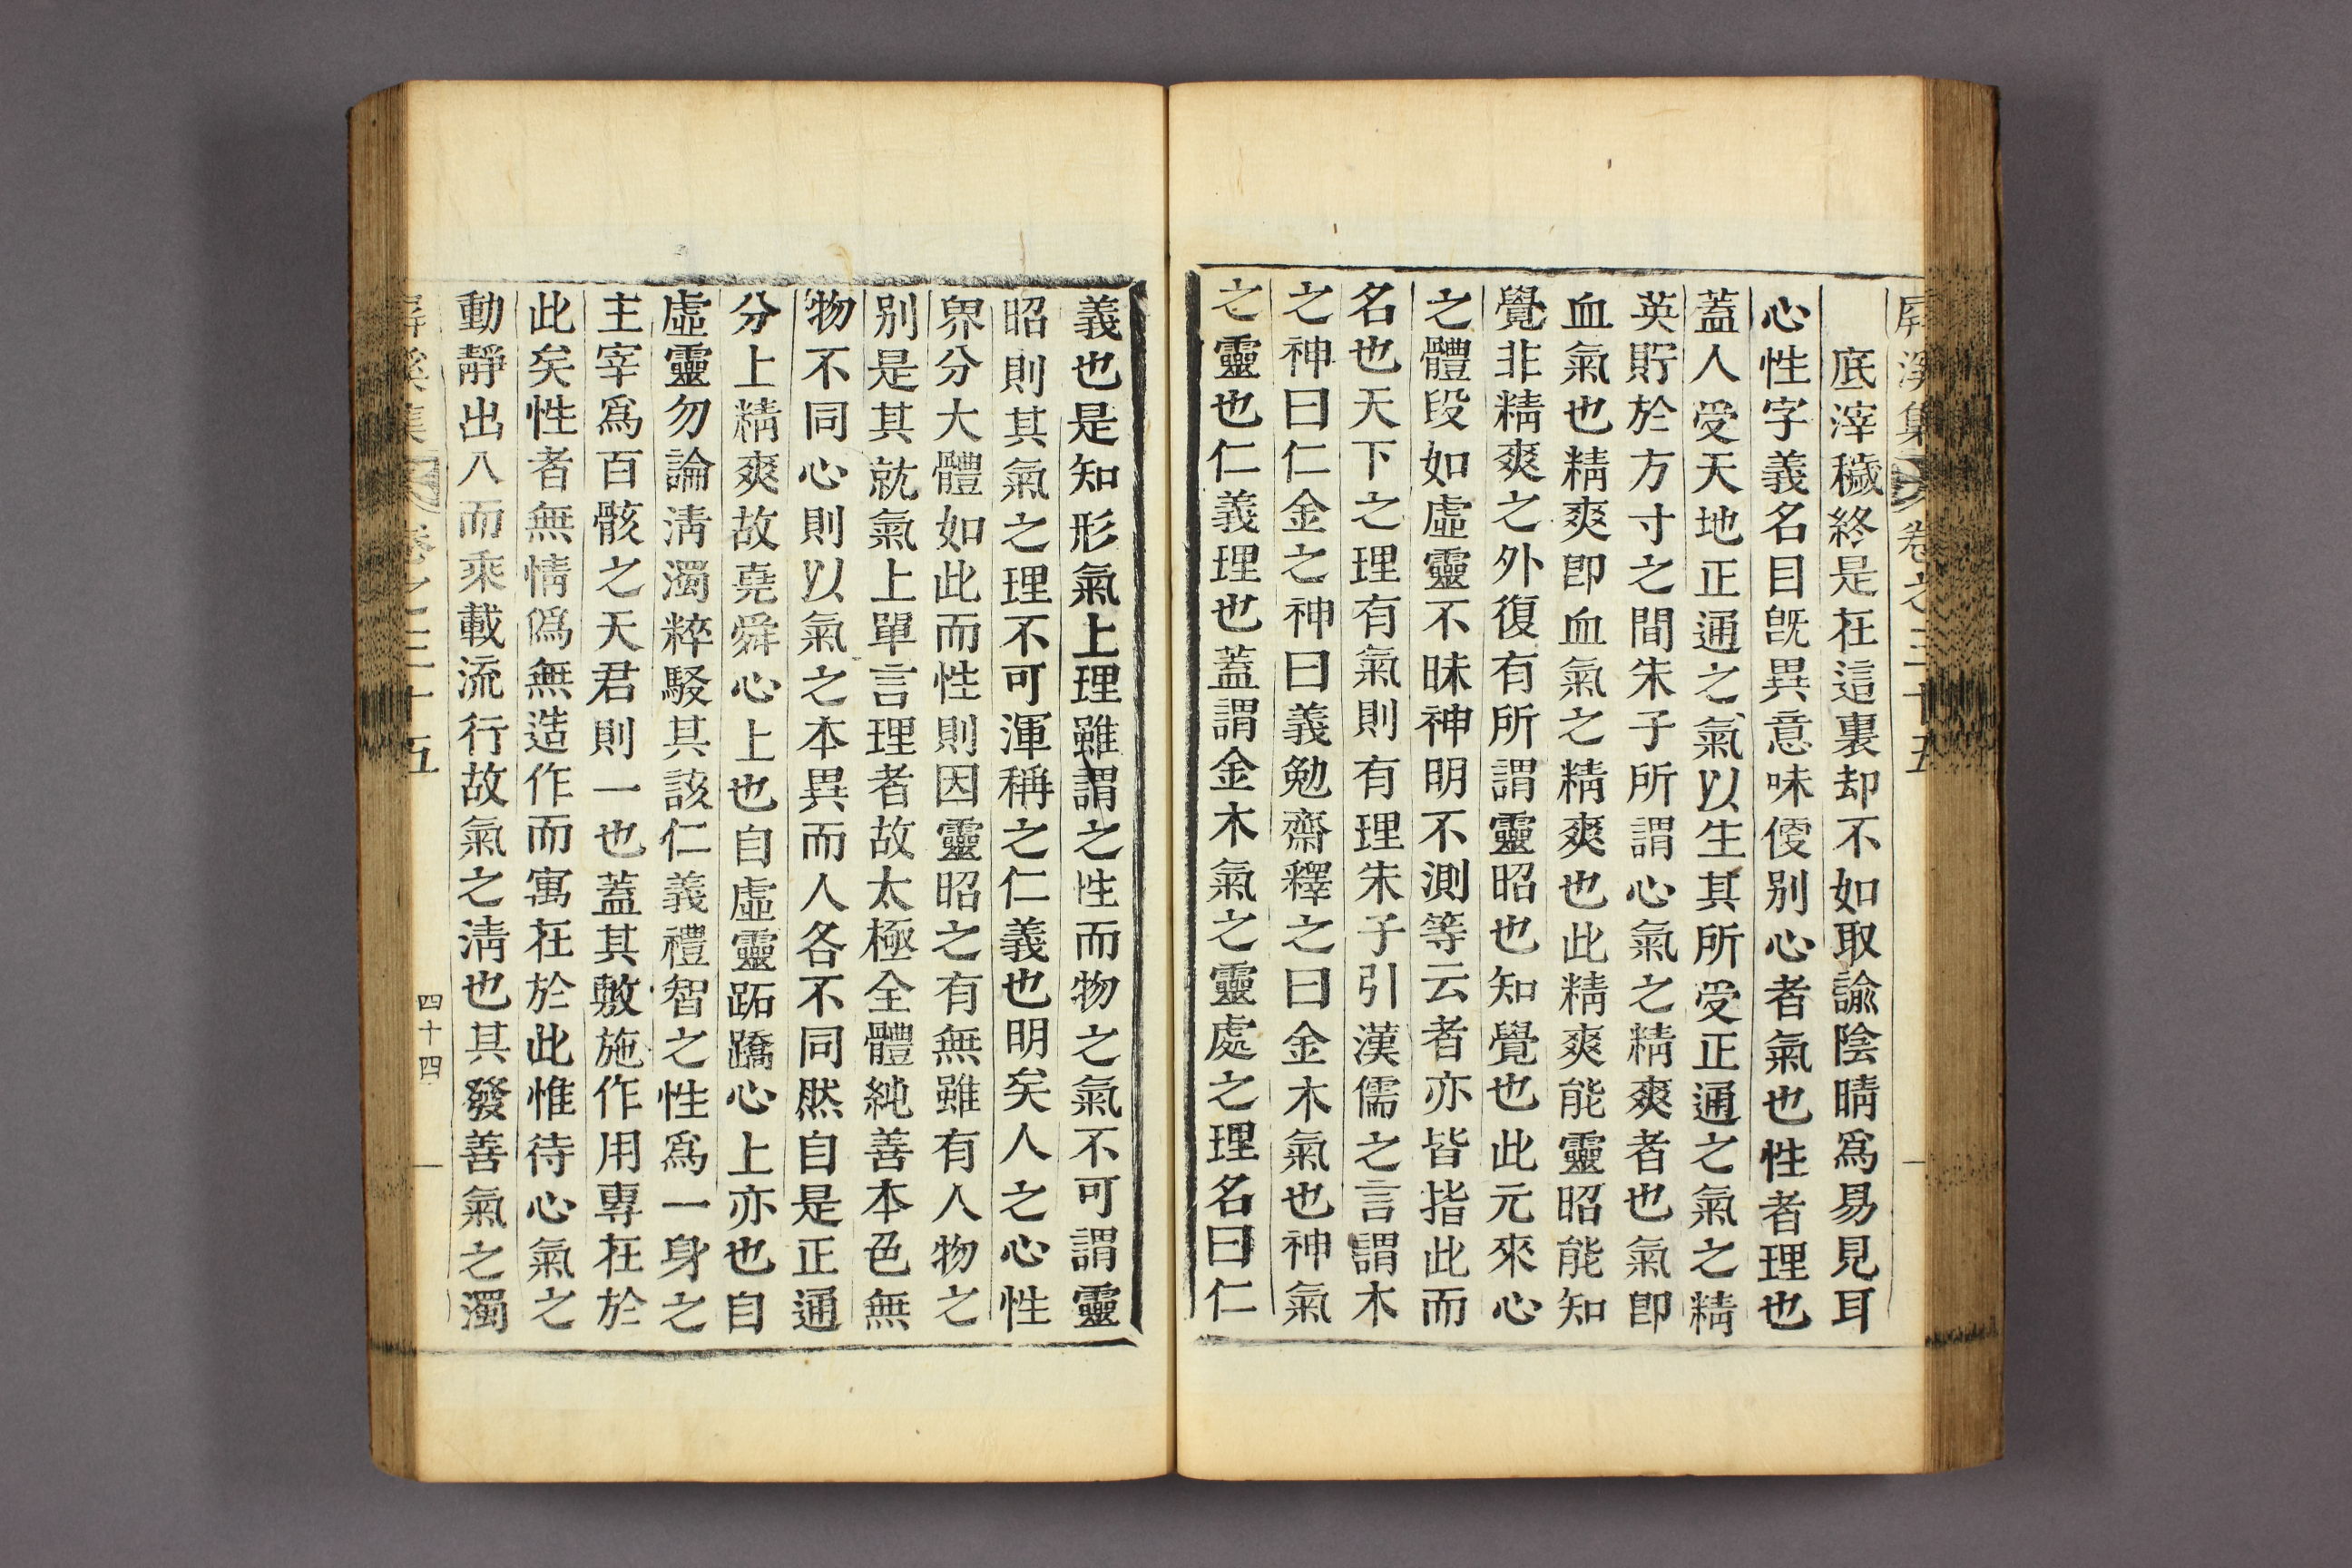 屛溪集 卷之三十五
底滓穢終是在這裏却不如取諭陰晴爲易見耳
心性字義名目旣異意味便別心者氣也性者理也
蓋人受天地正通之氣以生其所受正通之氣之精
英貯於方寸之間朱子所謂心氣之精爽者也氣卽
血氣也精爽卽血氣之精爽也此精爽能靈昭能知
覺非精爽之外復有所謂靈昭也知覺也此元來心
之體段如虛靈不昧神明不測等云者亦皆指此而
名也天下之理有氣則有理朱子引漢儒之言謂木
之神曰仁金之神曰義勉齋釋之曰金木氣也神氣
之靈也仁義理也蓋謂金木氣之靈處之理名曰仁
義也是知形氣上理雖謂之性而物之氣不可謂靈
昭則其氣之理不可渾稱之仁義也明矣人之心性
界分大體如此而性則因靈昭之有無雖有人物之
別是其就氣上單言理者故太極全體純善本色無
物不同心則以氣之本異而人各不同然自是正通
分上精爽故堯舜心上也自虛靈跖蹻心上亦也自
虛靈勿論淸濁粹駁其該仁義禮智之性爲一身之
主宰爲百骸之天君則一也蓋其敷施作用專在於
此矣性者無情僞無造作而寓在於此惟待心氣之
動靜出入而乘載流行故氣之淸也其發善氣之濁
屛溪集 卷之三十五 四十四